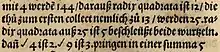 mit 4 werdē 144/ darauß radix quadrata ist 12/ die
thů zum ersten collect nemlich zů 13/ werden 25. ra-
dix quadrata auß 25 ist 5 beschleüßt beide wurtzeln
daß √4 ist 2. √9 ist 3. pringen in einer summa 5